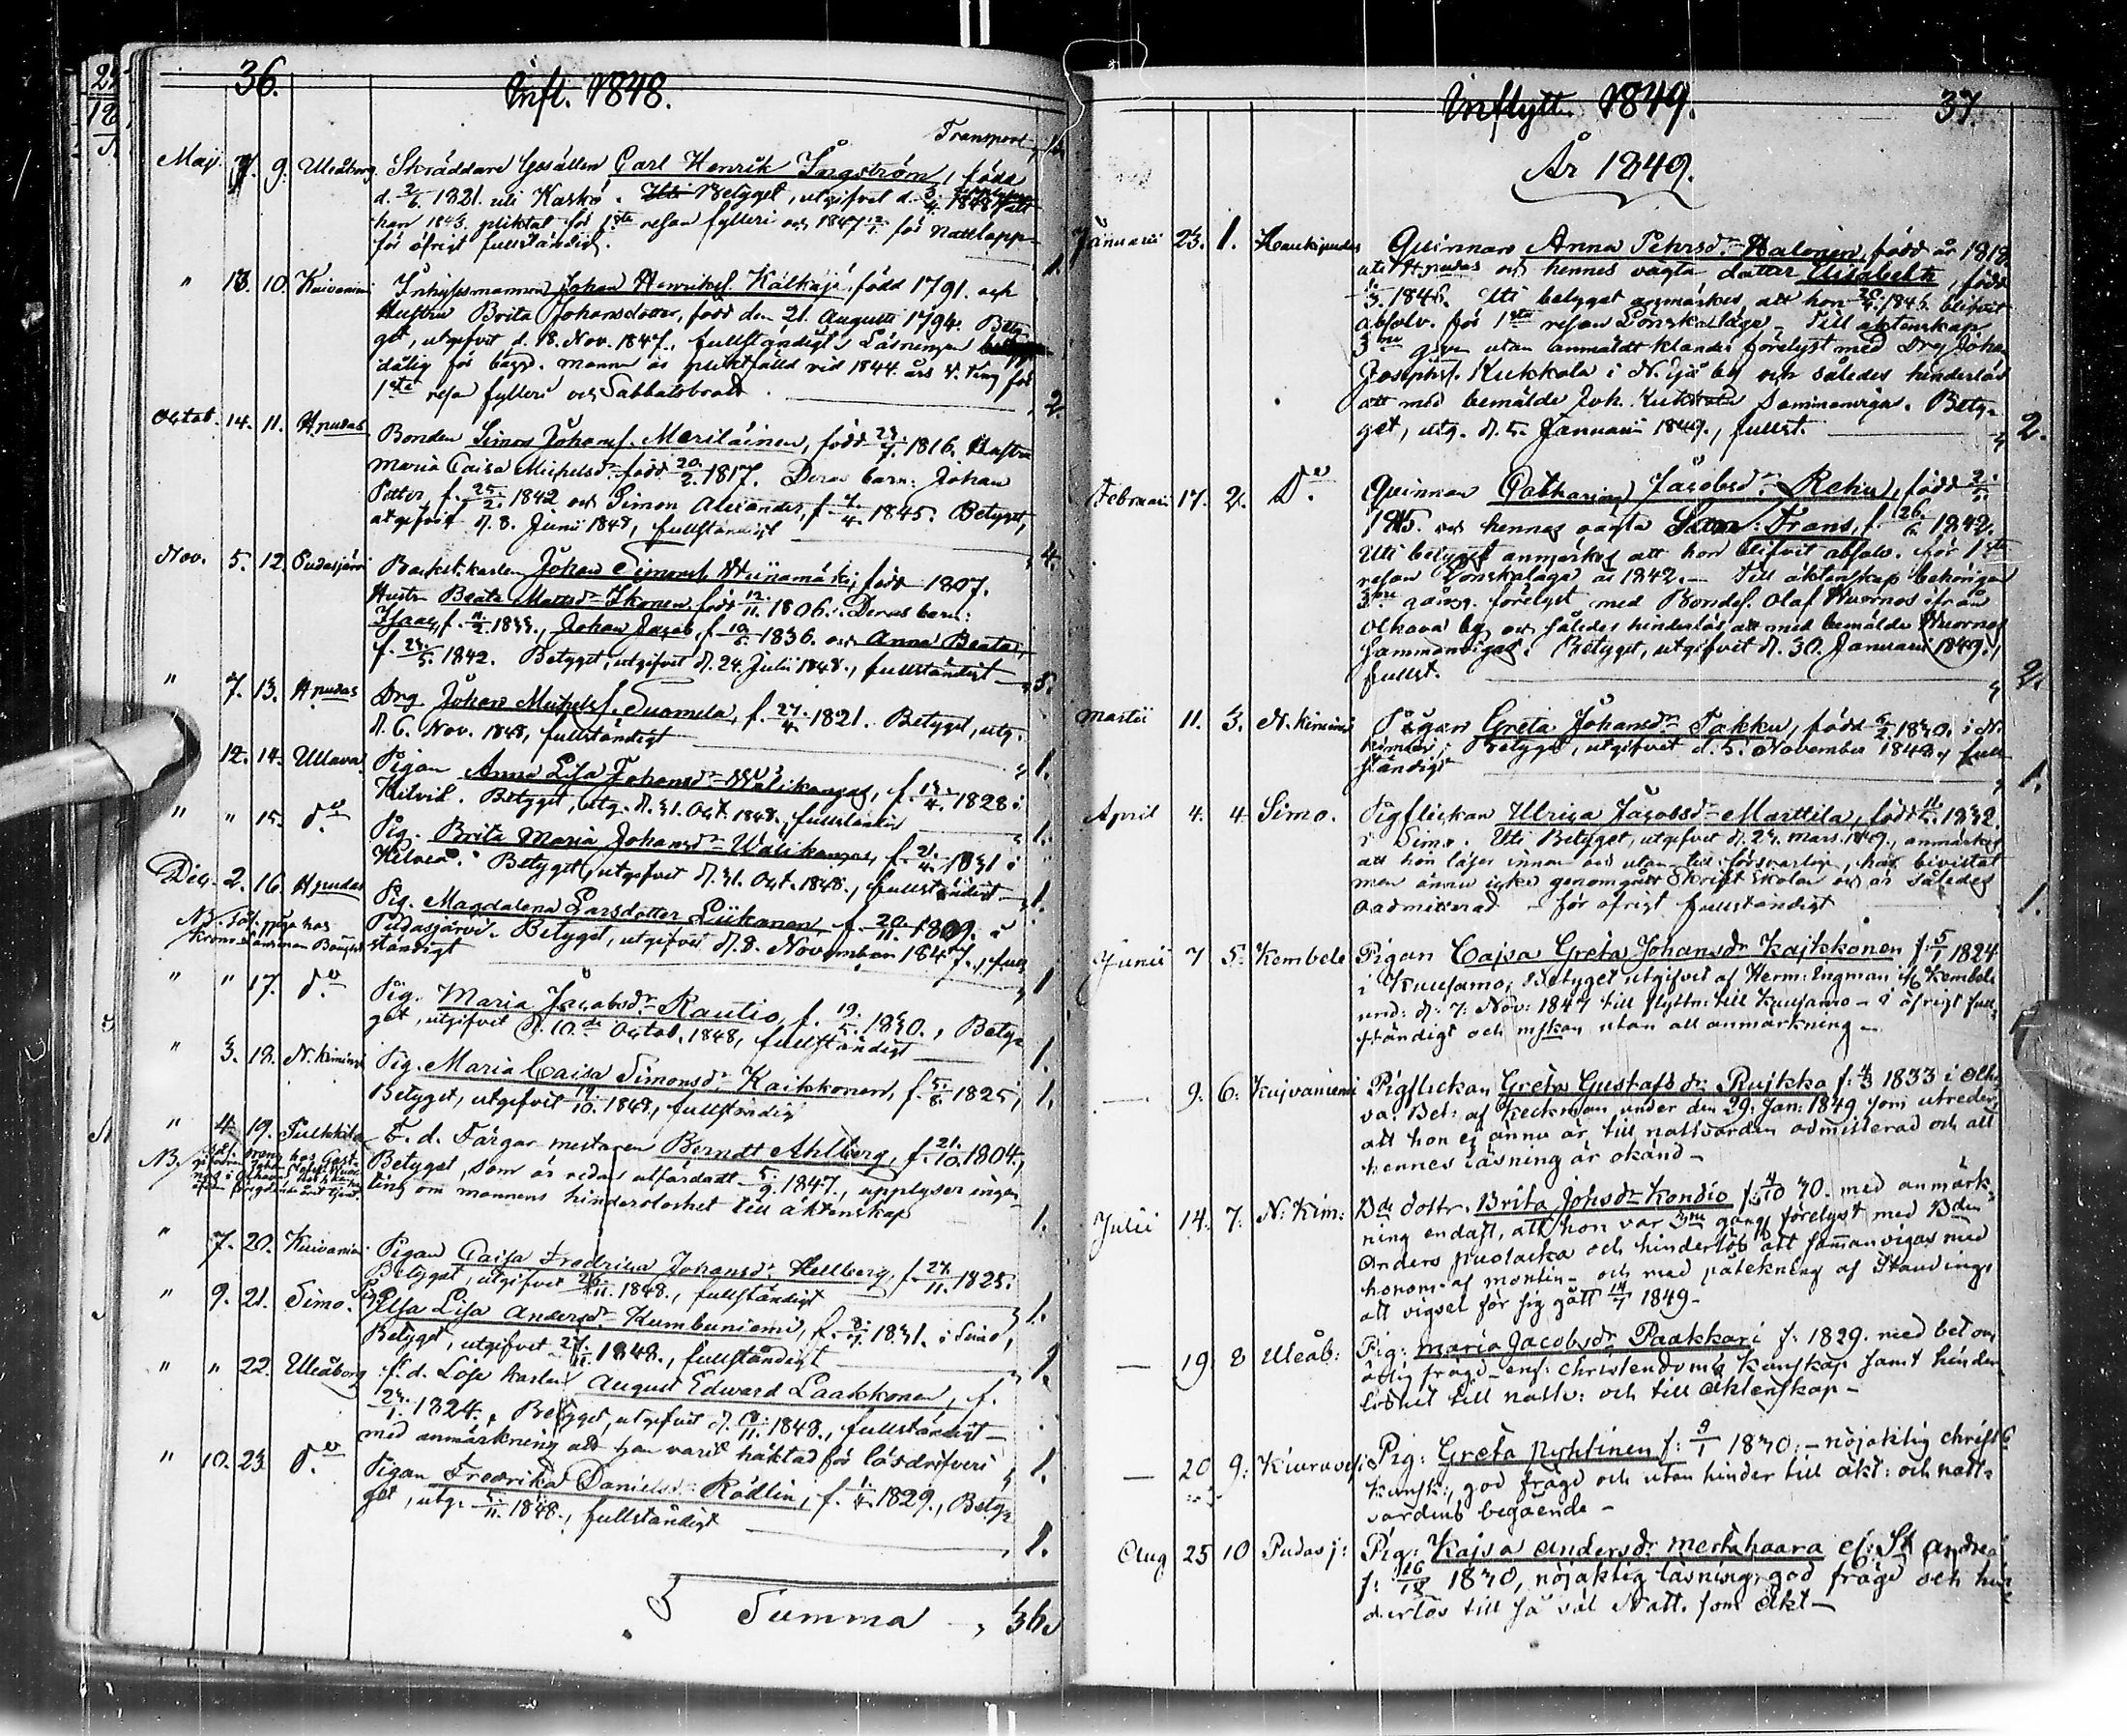 36.
Infl. 1848.
Transport
Maj. 7. 9. Uleåborg. Skräddare Gesällen Carl Henrik Ångström, född
d. 2/6. 1821. uti Kaskö. Betyget, utgifvet d. 3/4. 1848
han 1843. pliktat för 1sta resan fylleri och 1847 för Nattlopp
för öfrigt fullständigt. 1.
" 13. 10. Kuivaniemi Inhysesmannen Johan Henriks. Kälkäjä, född 1791. och
Hustru Brita Johansdotter, född den 21. Augusti 1794. Bety-
get, utgifvet d. 18. Nov. 1847., fullständigt, Läsningen
dålig för bägge. mannen är pliktfälld vid 1844. års V. Ting för
1sta resa fylleri och Sabbatsbrott. 2.
Octob. 14. 11. Hpudas Bonden Simon Johans. Meriläinen, född 1816. Hustru
Maria Caisa Michelsdr född 20/2. 1817. Deras barn: Johan
Petter, f. 25/2. 1842 och Simon Alexander, f. 7/4. 1845. Betyget,
utgifvit d. 8. Junii 1848, fullständigt 4.
Nov. 5. 12. Pudasjärvi Backst.karlen Johan Simons. Niinamäki, född 1807.
Hustru Beata Mattsdr Ikonen född 12/11. 1806. Deras barn:
Isaac, f. 1833., Johan Jacob, f. 10/5. 1836. och Anna Beata,
f. 24/5. 1842. Betyget, utgifvet d. 24. Julii 1848., fullständigt 5.
" 7. 13. Hpudas Drg Johan Michels. Suomela, f. 27/4. 1821. Betyget, utg.
d. 6. Nov. 1848, fullständigt 1.
12. 14. Ullava. Pigan Anna Lisa Johansdr Wälikangas, f. 13/4. 1828 i
Kelviå. Betyget, utg. d. 31. Oct. 1848., fullständigt 1.
" " 15. do Pig. Brita Maria Johansdr Wälikangas, f. 2/4. 1831 i
Kelviå. Betyget, utgifvet d. 31. Oct. 1848., fullständigt 1.
Dec. 2. 16. Hpudas Pig. Magdalena Larsdotter Liikanen f. 20/11. 1809. i
Pudasjärvi. Betyget, utgifvet d. 8. November 1847., full-
ständigt 1
" " 17. do Pig. Maria Jacobsdr Rautio, f. 19/5. 1830., Bety-
get, utgifvet d. 10de Octob. 1848, fullständigt 1.
" 3. 18. N. Kiminge Pig. Maria Caisa Simonsdr Kaikkonen, f. 5/8. 1825,
Betyget, utgifvit 19/10. 1848, fullständig 1.
" 4. 19. Pulkkila F. d. Färgar mestaren Berndt Ahlberg, f. 21/10. 1804,
NB. Betyget, som är redan utfärdadt 5/9. 1847., upplyser ingen-
ting om mannens hinderslöshet till äktenskap 1.
" 7. 20. Kuivaniemi Pigan Caisa Fredrica Johansdr Hellberg, f. 27/11. 1825.
Betyget, utgifvet 26/11. 1848., fullständigt 1.
" 9. 21. Simo. Pig. Elsa Lisa Andersdr Kumbuniemi, f. 8/7. 1831. i Simo,
Betyget, utgifvet 27/11. 1848., fullständigt 1.
" " 22. Uleåborg f. d. Lösa karlen August Edward Laakkonen, f.
1824., Betyget, utgifvit d. 18/11. 1848., fullständigt
med anmärkning att han varit häktad för lösdrifveri 1.
" 10. 23. do Pigan Fredrika Danielsdr Rödlin, f. 1829., Bety-
get, utg. 5/11. 1848., fullständigt 1.
Summa 36
Inflytt. 1849. 37.
År 1849.
Januarii 23. 1. Haukipudas Qvinnan Anna Pehrsdr Halonen, född år 1818.
uti Hpudas och hennes oägta dotter Elisabeth, född
1/3. 1845. Uti betyget anmärkes, att hon 1845. blifvit
absolv. för 1sta resan Lönskaläge. Till äktenskap
3ne gr utan anmäldt klander förelyst med Drg Johan
Josephs. Kukkola i N. Ijo by och således hinderlös
att med bemälde Joh. Kukkola Sammanvigas. Bety-
get, utg. d. 5. Januarii 1849., fullst. 2.
Februarii 17. 2. Do Qvinnan Catharina Jacobsdr Rehu, född 2/
1815. och hennes oägta Son: Frans, f. 26/ 1842.
Uti betyget anmärkes att hon blifvit absolv. för 1sta
resan Lönskaläge år 1842. — Till äktenskap behörigen
3ne gång. förelyst med Bondes. Olof Wuornos ifrån
Olhava by, och således hinderlös att med bemälde Wuornos
Sammanvigas. Betyget, utgifvit d. 30. Januarii 1849.,
fullst. 2.
Martii 11. 3. N. Kiminge Pigan Greta Johansdr Takku, född 6/2. 1830. i N.
Kiminge. Betyget, utgifvet d. 5. November 1848., full-
ständigt 1.
April 4. 4. Simo. Pigflickan Ulrica Jacobsdr Marttila, född 1832.
i Simo. Uti Betyget, utgifvet d. 24. Mars. 1849., anmärkes
att hon läser innan och utan till försvarligt, har bivistat
men ännu icke genomgått Skriftskolan och är således
oadmitterad — för öfrigt fullständigt 1.
Junii 7 5. Kembele Pigan Cajsa Greta Johansdr Kajkkonen f: 5/1 1824
i Kuusamo, Betyget utgifvit af Herm: Ingman i Kembele
und: d: 7: Nov: 1847 till flyttn: till Kuusamo — i öfrigt full-
ständigt och utan all anmärkning —
— 9. 6. Kujvaniemi Pigflickan Greta Gustafsdr Rujkka f: 4/3 1833 i Olha-
va. Bet: af Keckman under den 29: Jan: 1849 som utreder,
att hon ej ännu är till nattvarden admitterad och att
hennes läsning är okänd —
Julii 14. 7. N: Kim: Bde dottr. Brita Johsdr Kondio f. 4/10 30. med anmärk-
ning endast, att hon var 3ne gång förelyst med Bden
Anders Huolacka och hinderlös att sammanvigas med
honom af Montin — och med påtekning af Standing,
att vigsel för sig gått 14/7 1849 —
— 19. 8 Uleåb: Pig: Maria Jacobsdr Paakkari f. 1829. med bet om
ärlig frägd — enf: christendoms kunskap samt hinder-
löshet till nattv: och till äktenskap —
— 20 9. Kiuruvesi Pig: Greta Nyhtinen f: 9/1 1830: — nöjaktig christ:
kunsk:, god frägd och utan hinder till äkt: och natt-
vardens begående —
Aug 25 10 Pudasj: Pig: Kajsa Andersdr Mertahaara
f: 1830, nöjaktig läsning, god frägd och hin-
derlös till så väl Nattv. som äkt —